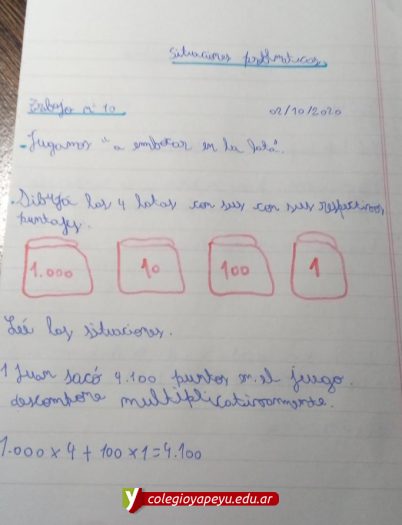 Situaciones problemáticas
Trabajo n° 10
02/10/2020
- Jugamos "a embocar en la lata".
. Dibuja las 4 latas con sus con sus respectivos
puntajes.
1.000
10
100
1
Leé las situaciones.
1 Juan sacó 4.100 puntos en el juego.
descompone multiplicativamente.
1.000 x 4 + 100 x 1 = 4.100
y colegioyapeyu.edu.ar